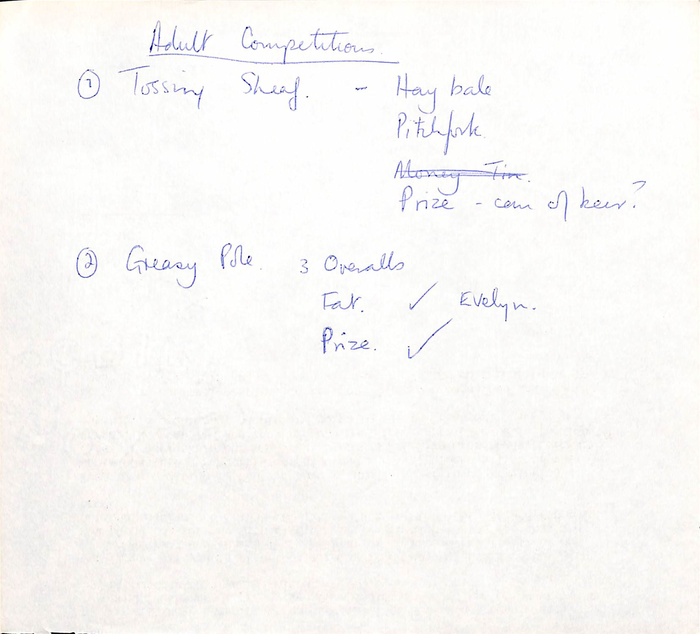 Adult Competitions.
① Tossing Sheaf. - Hay bale
Pitchfork
Money Tin.
Prize - can of beer?
② Greasy Pole. 3 Overalls
Fat. ✓ Evelyn.
Prize. ✓